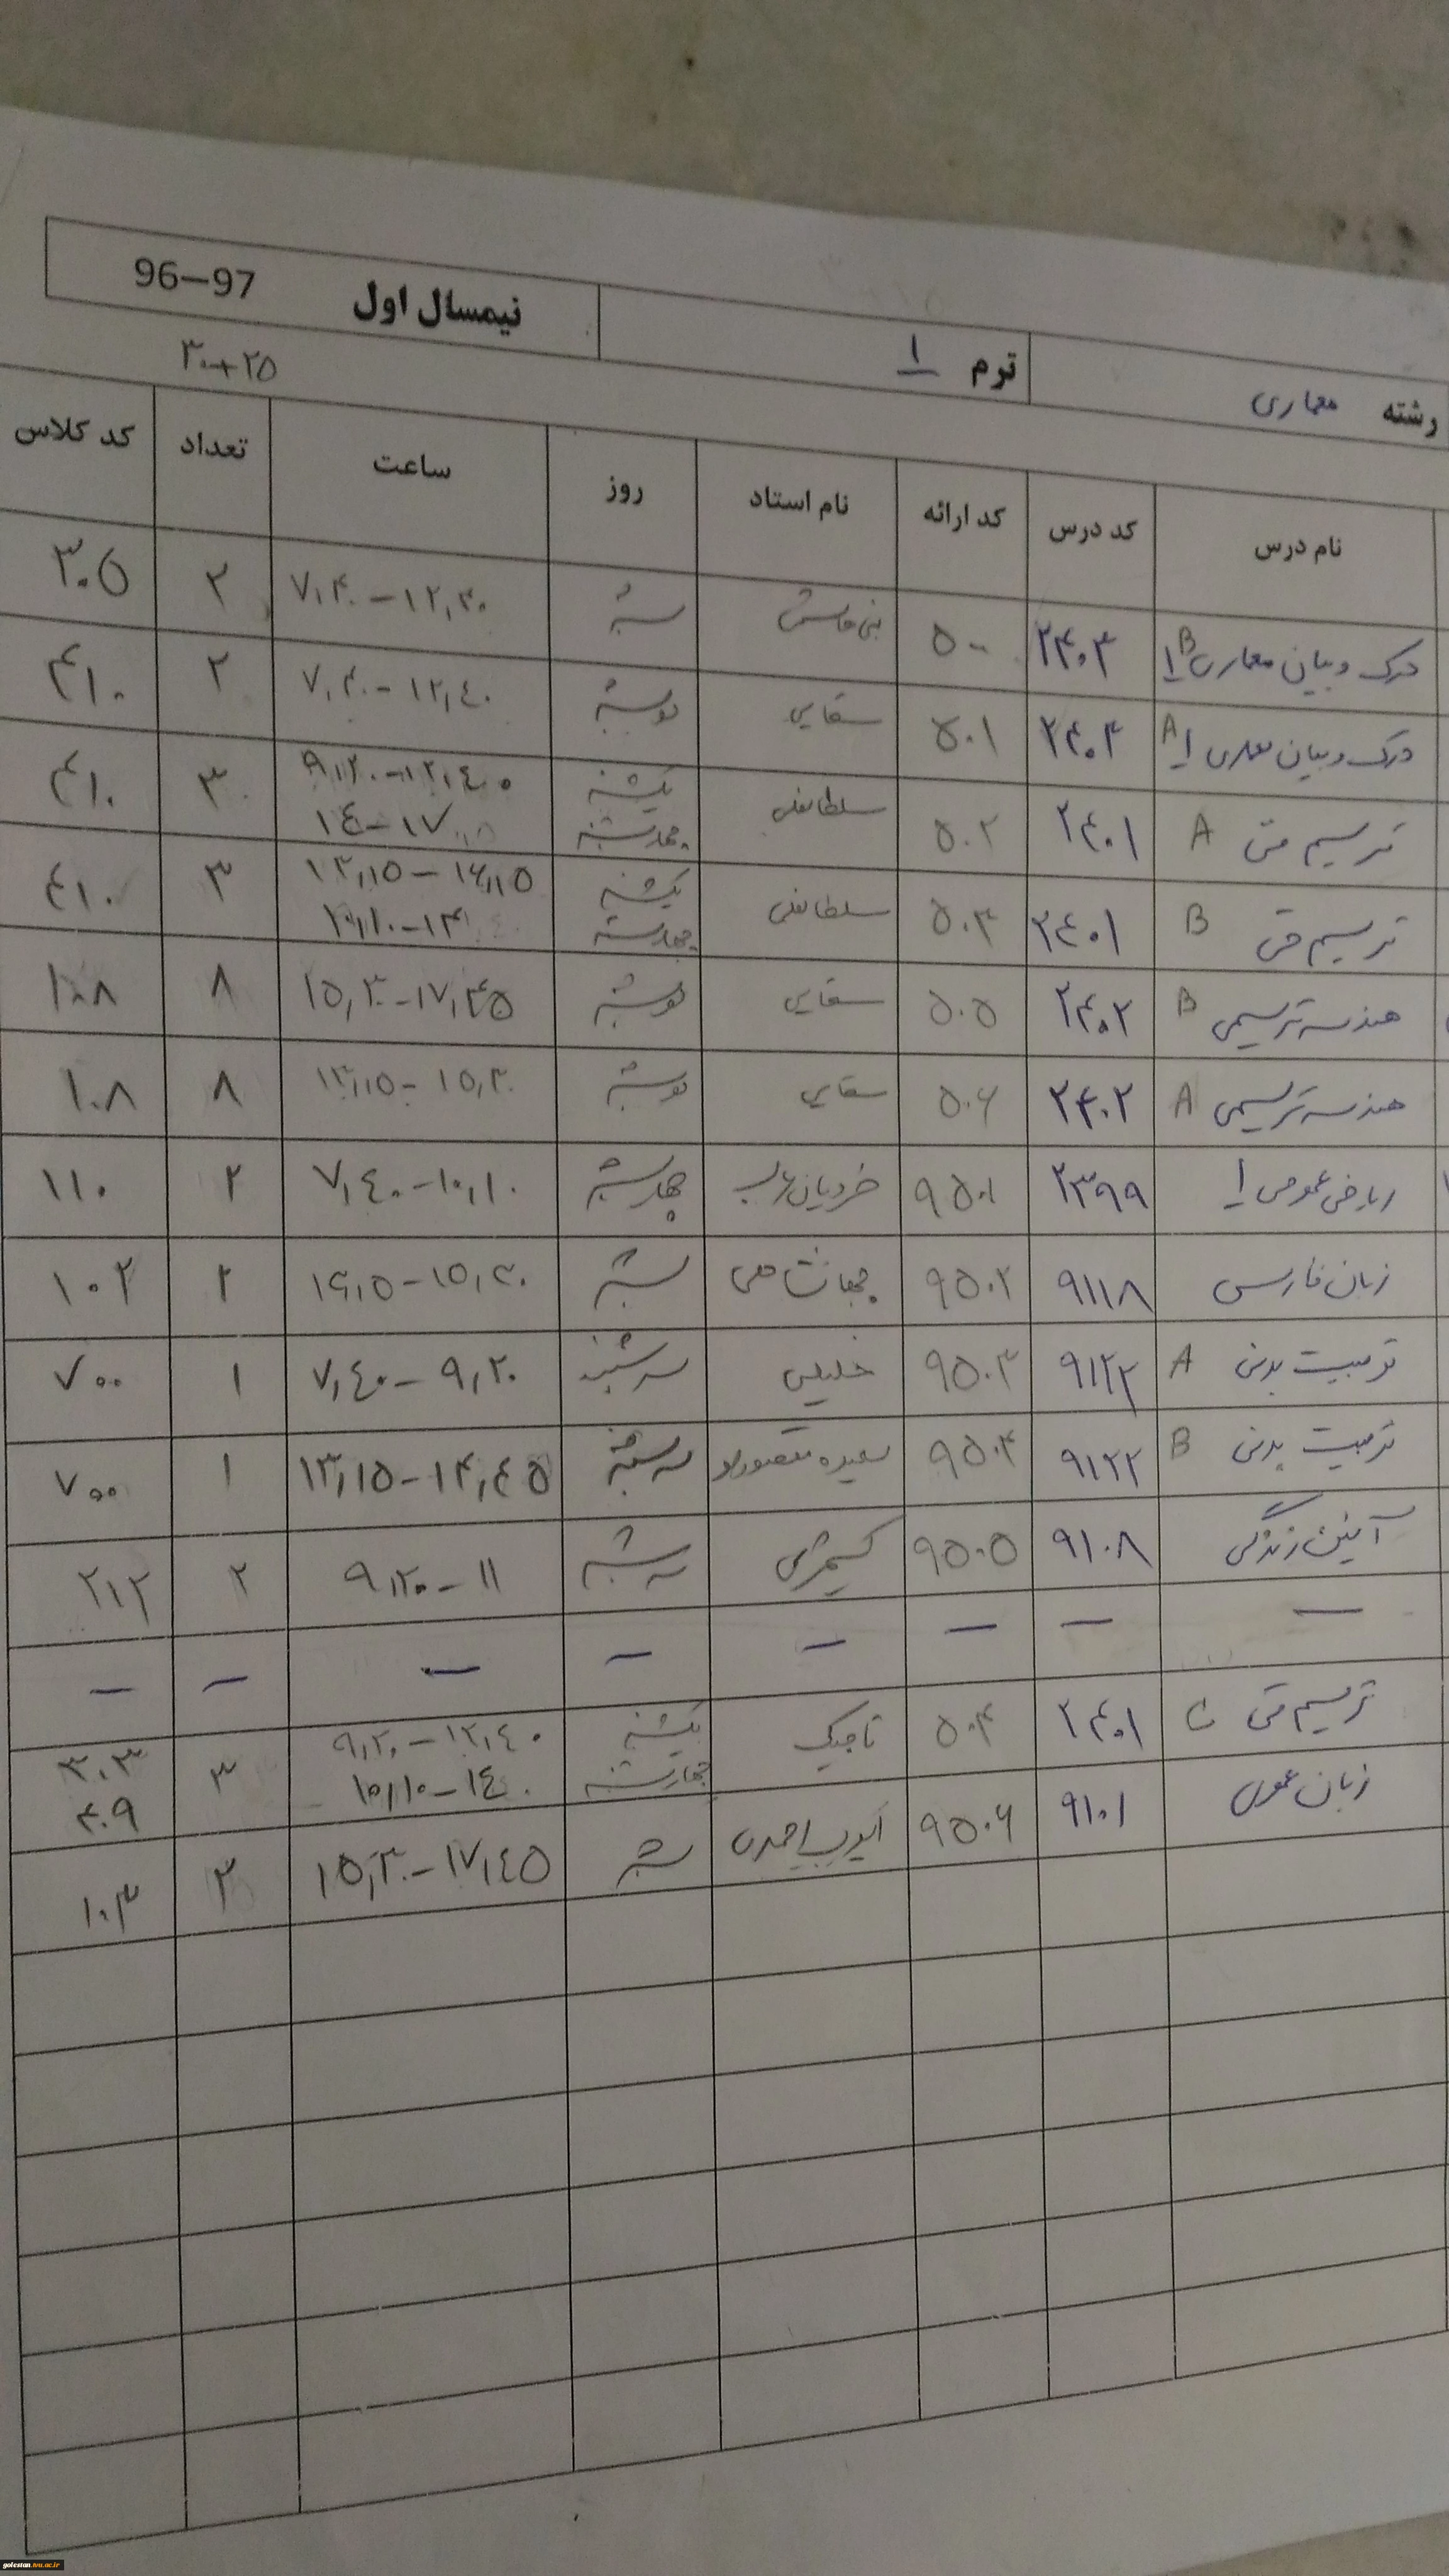 رشته معماری ترم ۱ نیمسال اول 96–97
۳۰+۲۵
نام درس کد درس کد ارائه نام استاد روز ساعت تعداد کد کلاس
درک و بیان معماری ۱ B ۲۴۰۳ ۵۰۰ شنبه ۷,۴۰-۱۲,۴۰ ۲ ۳۰۵
درک و بیان معماری ۱ A ۲۴۰۳ ۵۰۱ سقایی دوشنبه ۷,۴۰-۱۲,۴۰ ۲ ۴۱۰
ترسیم فنی A ۲۴۰۱ ۵۰۲ سلطانعلی یکشنبه ۹,۲۰-۱۲,۴۰ ۳ ۴۱۰
چهارشنبه ۱۴-۱۷
ترسیم فنی B ۲۴۰۱ ۵۰۳ سلطانعلی یکشنبه ۱۳,۱۵-۱۶,۱۵ ۳ ۴۱۰
چهارشنبه ۱۰,۱۰-۱۳
هندسه ترسیمی B ۲۴۰۲ ۵۰۵ سقایی دوشنبه ۱۵,۳۰-۱۷,۴۵ ۸ ۱۰۸
هندسه ترسیمی A ۲۴۰۲ ۵۰۶ سقایی دوشنبه ۱۳,۱۵-۱۵,۳۰ ۸ ۱۰۸
ریاضی عمومی ۱ ۲۳۹۹ ۹۵۰۱ چهارشنبه ۷,۴۰-۱۰,۱۰ ۲ ۱۱۰
زبان فارسی ۹۱۱۸ ۹۵۰۲ جهانشاهی شنبه ۱۵,۳۰ ۲ ۱۰۲
تربیت بدنی A ۹۱۲۲ ۹۵۰۳ خلیلی سه شنبه ۷,۴۰-۹,۲۰ ۱ ۷۰۰
تربیت بدنی B ۹۱۲۲ ۹۵۰۴ سعیده سه شنبه ۱۳,۱۵-۱۴,۴۵ ۱ ۷۰۰
آئین زندگی ۹۱۰۸ ۹۵۰۵ سه شنبه ۹,۲۰-۱۱ ۲ ۲۱۲
— — — — — — — —
ترسیم فنی C ۲۴۰۱ ۵۰۴ تاجیک یکشنبه ۹,۲۰-۱۲,۴۰ ۳ ۳۰۳
چهارشنبه ۱۰,۱۰-۱۴ ۴۰۹
زبان عمومی ۹۱۰۱ ۹۵۰۶ ایوب احمدی شنبه ۱۵,۳۰-۱۷,۴۵ ۳ ۱۰۳
golestan.tvu.ac.ir